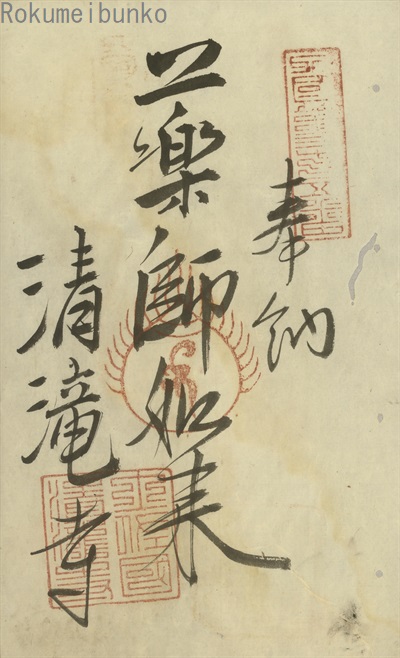 Rokumeibunko
奉納
薬師如来
清滝寺